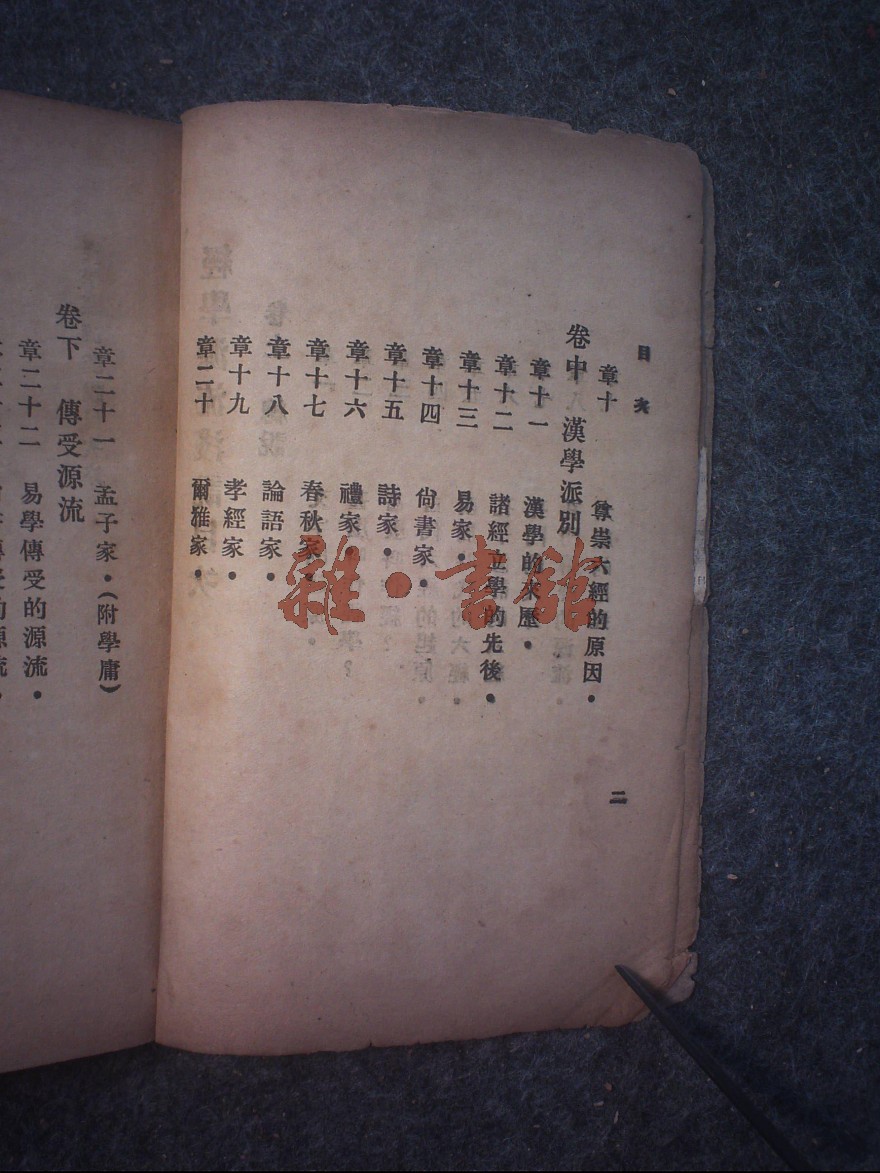 目次
章十　尊崇六經的原因．
卷中　漢學派別
章十一　漢學的來歷．
章十二　諸經立學的先後．
章十三　易家．
章十四　尙書家．
章十五　詩家．
章十六　禮家．
章十七　春秋家．
章十八　論語家．
章十九　孝經家．
章二十　爾雅家．
二
章二十一　孟子家．(附學庸)
卷下　傳受源流
章二十二　易學傳受的源流．
雜·書館